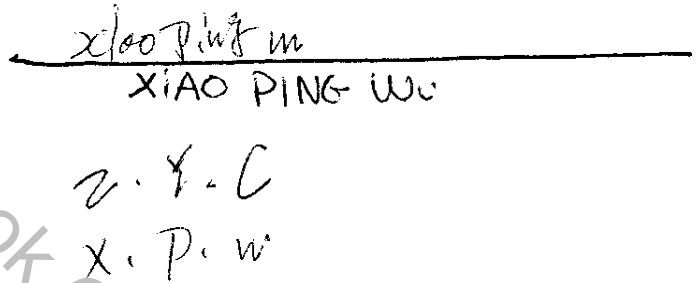 xiao Ping w
XiAO PING Wu
Z. Y. C
X. P. W